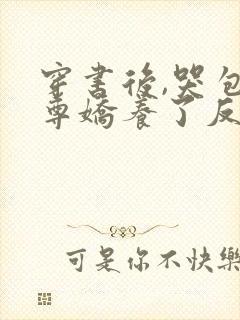 穿書後,哭包
尊嬌養了反
可是你不快樂